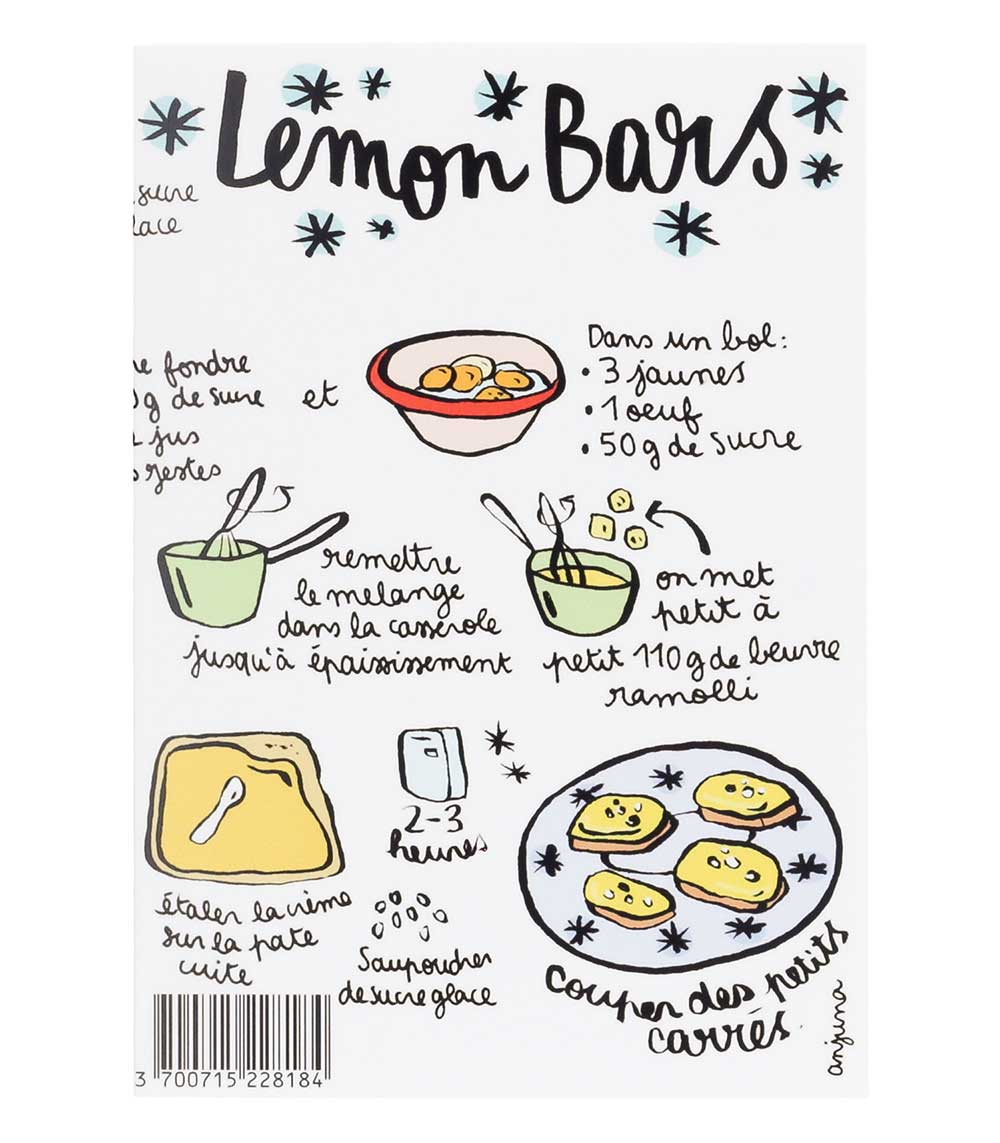 Lemon Bars
sucre
lace
fondre
g de sucre
jus
restes
et
Dans un bol:
• 3 jaunes
• 1 oeuf
• 50g de sucre
remettre
le melange
dans la casserole
jusqu'à épaississement
on met
petit à
petit 110g de beurre
ramolli
étaler la crème
sur la pate
cuite
2-3
heures
Saupoudrer
de sucre glace
couper des petits
carrés
anjuna
3 700715 228184